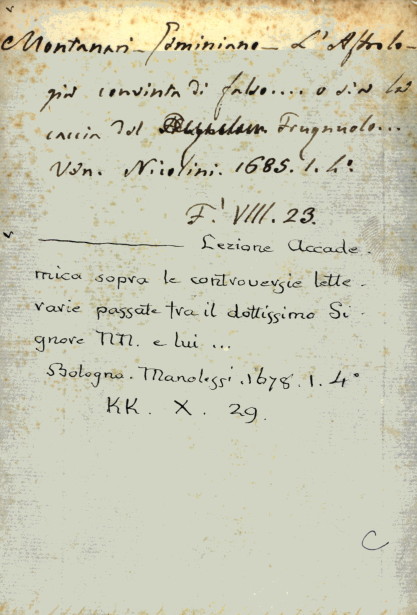 Montanari - Geminiano - L'Astrolo-
gia convinta di falso.... o sia la
caccia del Frugnuolo...
Ven. Nicolini. 1685. 1. 4°.
F.' VIII. 23.
———— Lezione Accade-
mica sopra le controversie lette-
rarie passate tra il dottissimo Si-
gnore MM. e lui ...
Bologna. Manolessi. 1678. 1. 4°
KK. X. 29.
C